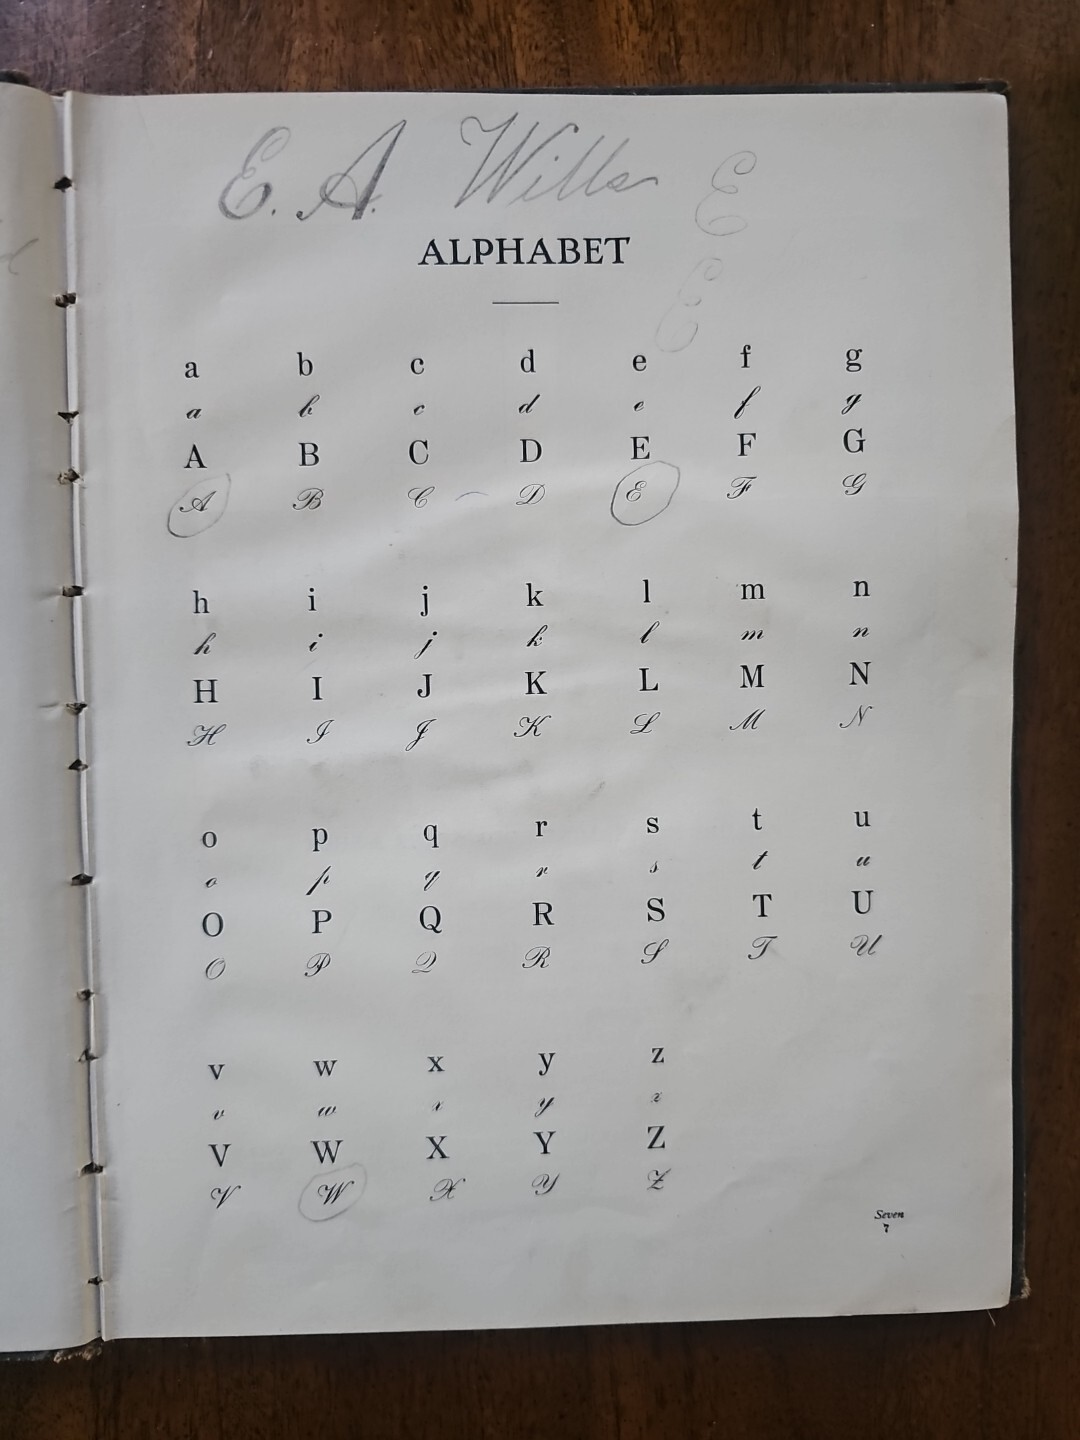 E. A. Wills E
ALPHABET
E
a b c d e f g
a b c d e f g
A B C D E F G
A B C D E F G
h i j k l m n
h i j k l m n
H I J K L M N
H I J K L M N
o p q r s t u
o p q r s t u
O P Q R S T U
O P Q R S T U
v w x y z
v w x y z
V W X Y Z
V W X Y Z
Seven
7